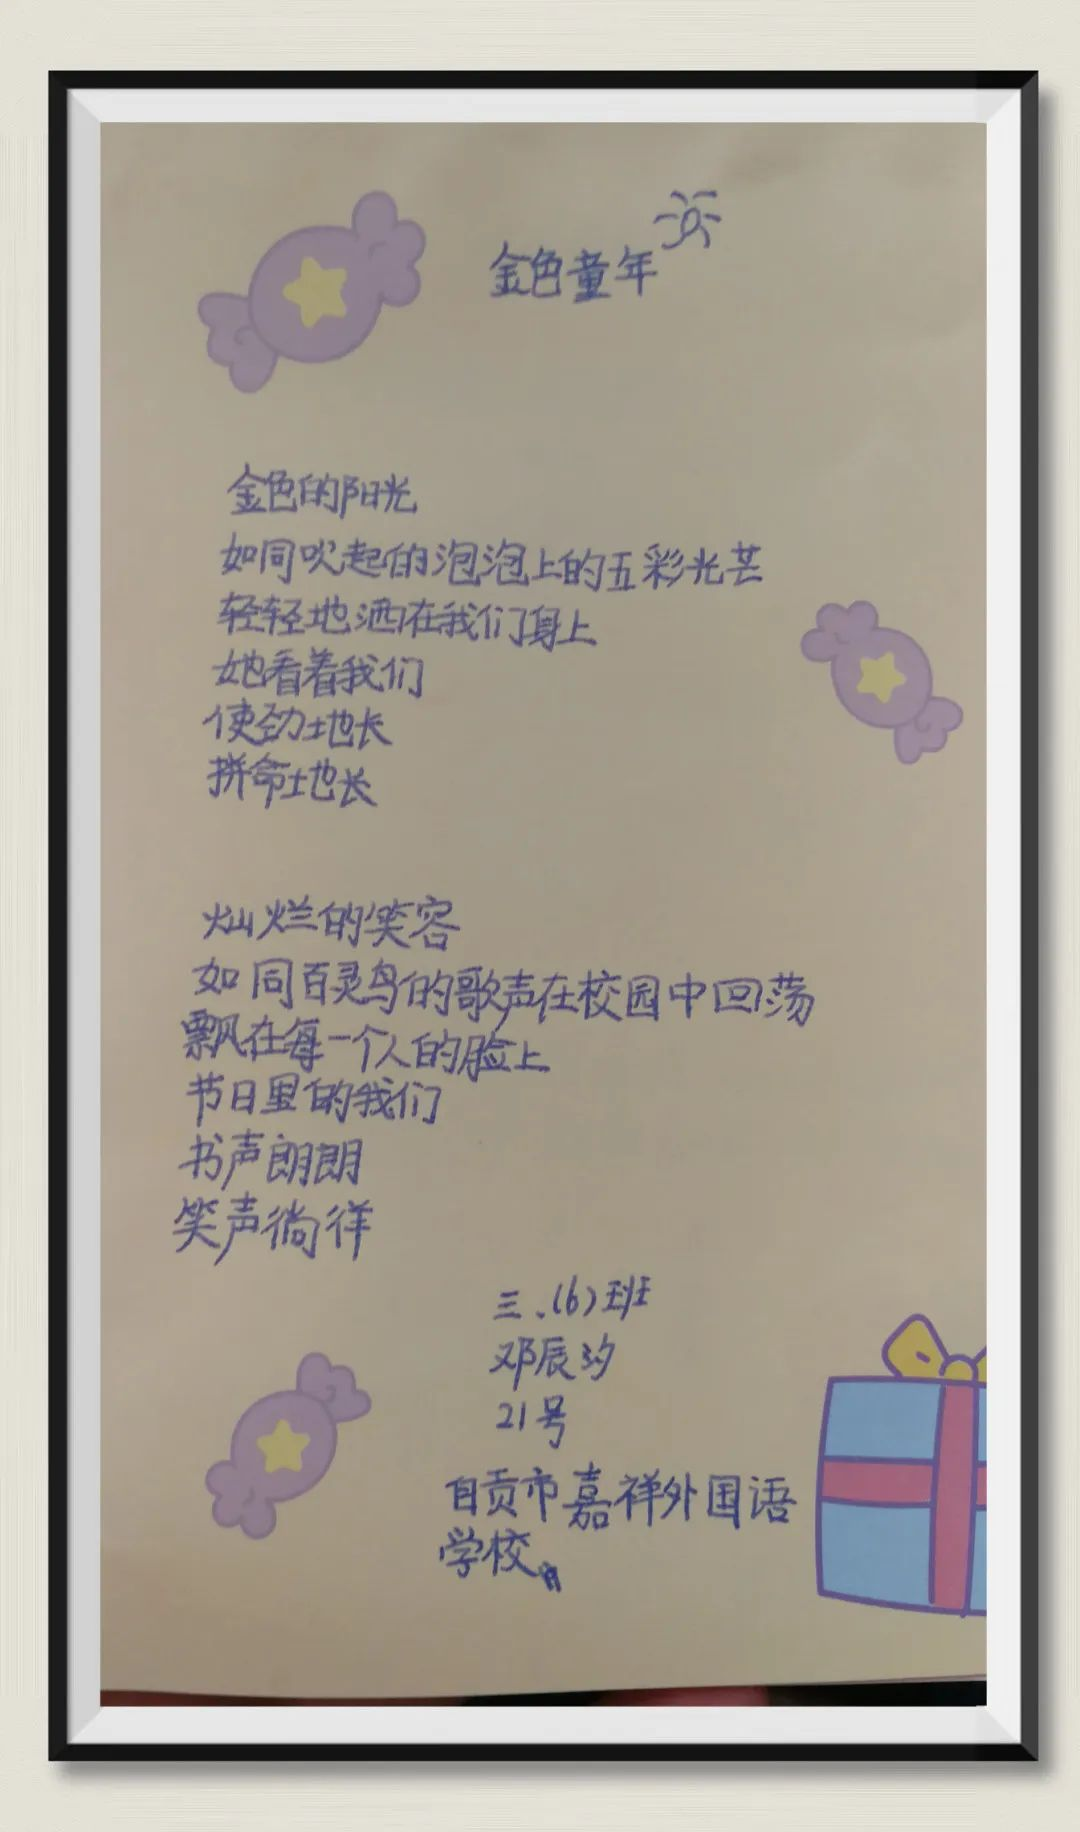 金色童年
金色的阳光
如同吹起的泡泡上的五彩光芒
轻轻地洒在我们身上
她看着我们
使劲地长
拼命地长
灿烂的笑容
如同百灵鸟的歌声在校园中回荡
飘在每一个人的脸上
节日里的我们
书声朗朗
笑声徜徉
三.(6)班
邓辰汐
21号
自贡市嘉祥外国语
学校